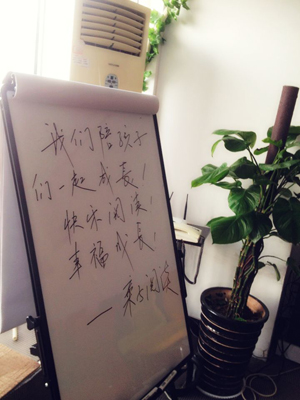 我们陪孩子
们一起成长！
快乐阅读！
幸福成长！
— 乘与阅读